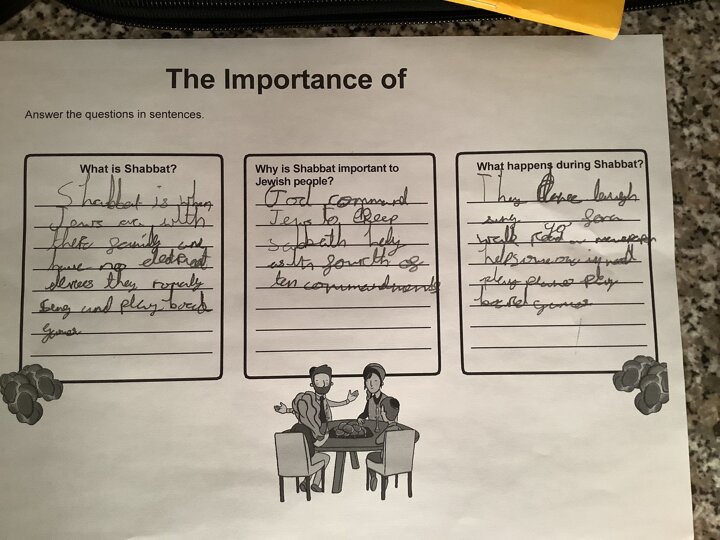 The Importance of
Answer the questions in sentences.
What is Shabbat?
Shabbat is when
Jews are with
their family and
have no
devices they
sing and play board
games
Why is Shabbat important to
Jewish people?
God command
Jews to keep
sabbath holy
as its fourth of
ten commandments
What happens during Shabbat?
They laugh
sing go for a
walk read a newspaper
play